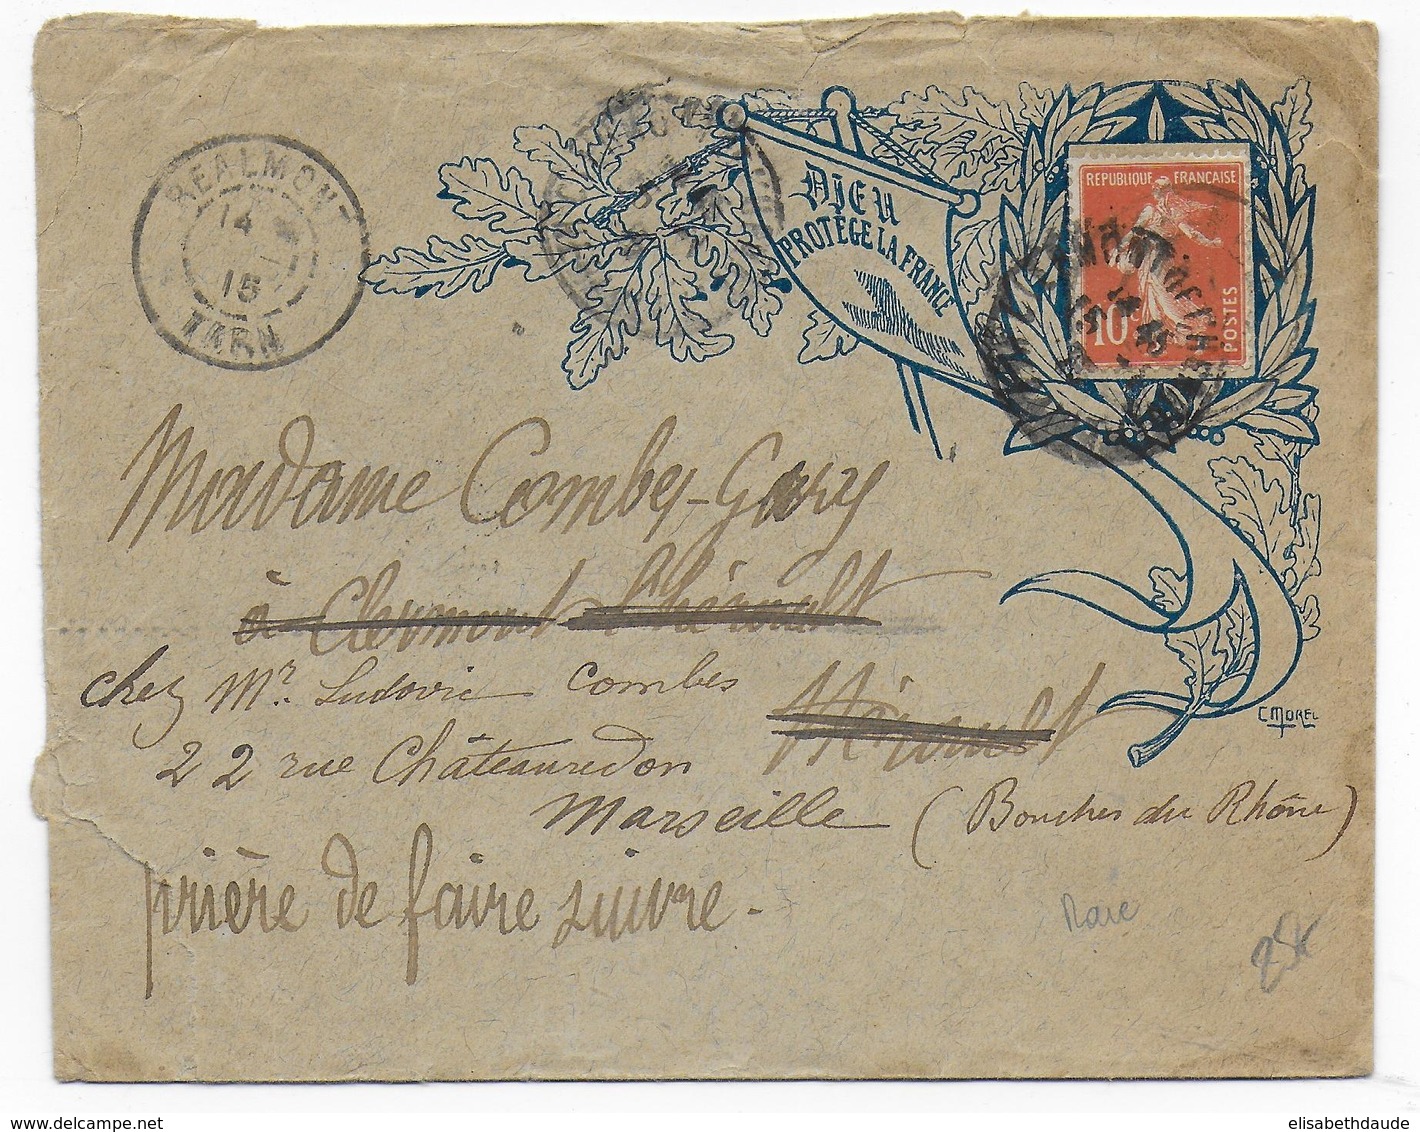 REALMONT
14
15
TARN
DIEU
PROTÈGE LA FRANCE
REPUBLIQUE FRANÇAISE
10c
POSTES
Madame Combes-Gary
à Clermont l'Hérault
chez Mr. Ludovic Combes
Hérault
22 rue Châteauredon
Marseille (Bouches du Rhône)
prière de faire suivre.
C MOREL
Rare
delcampe.net
elisabethdaude